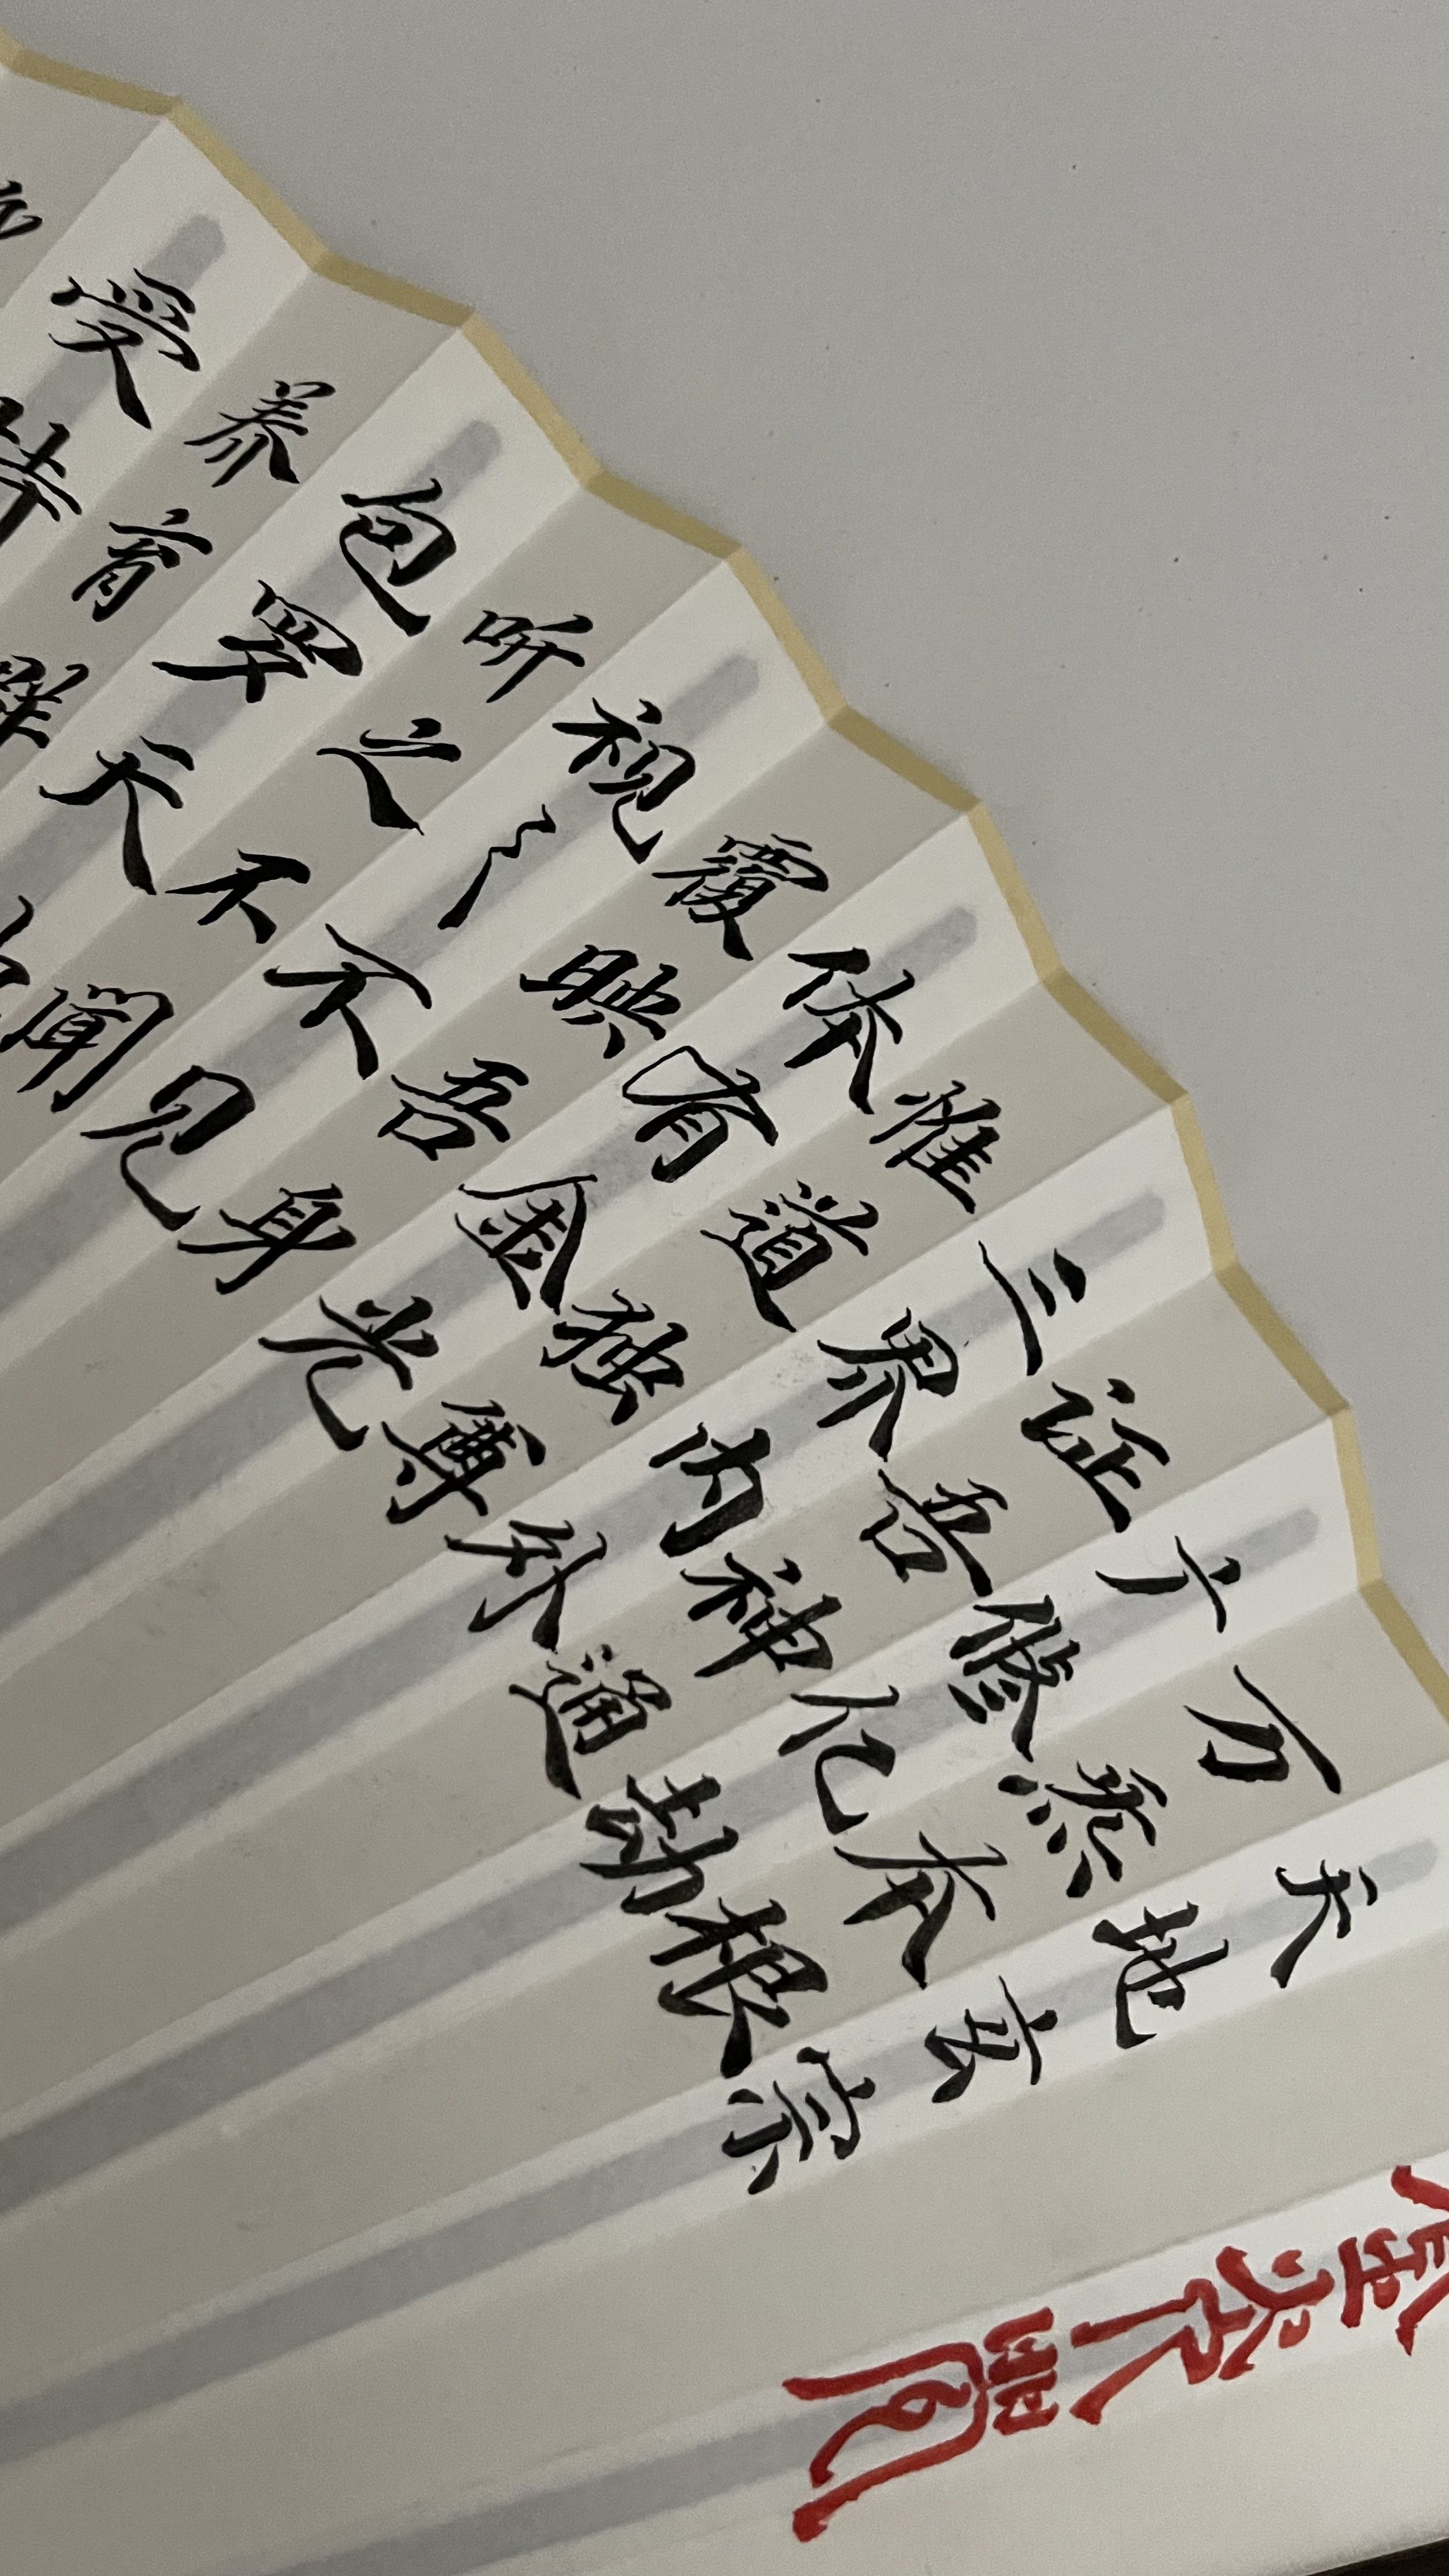 天地玄宗
万炁本根
广修亿劫
证吾神通
三界内外
惟道独尊
体有金光
覆映吾身
视之不见
听之不聞
包罗天
养育群
受持